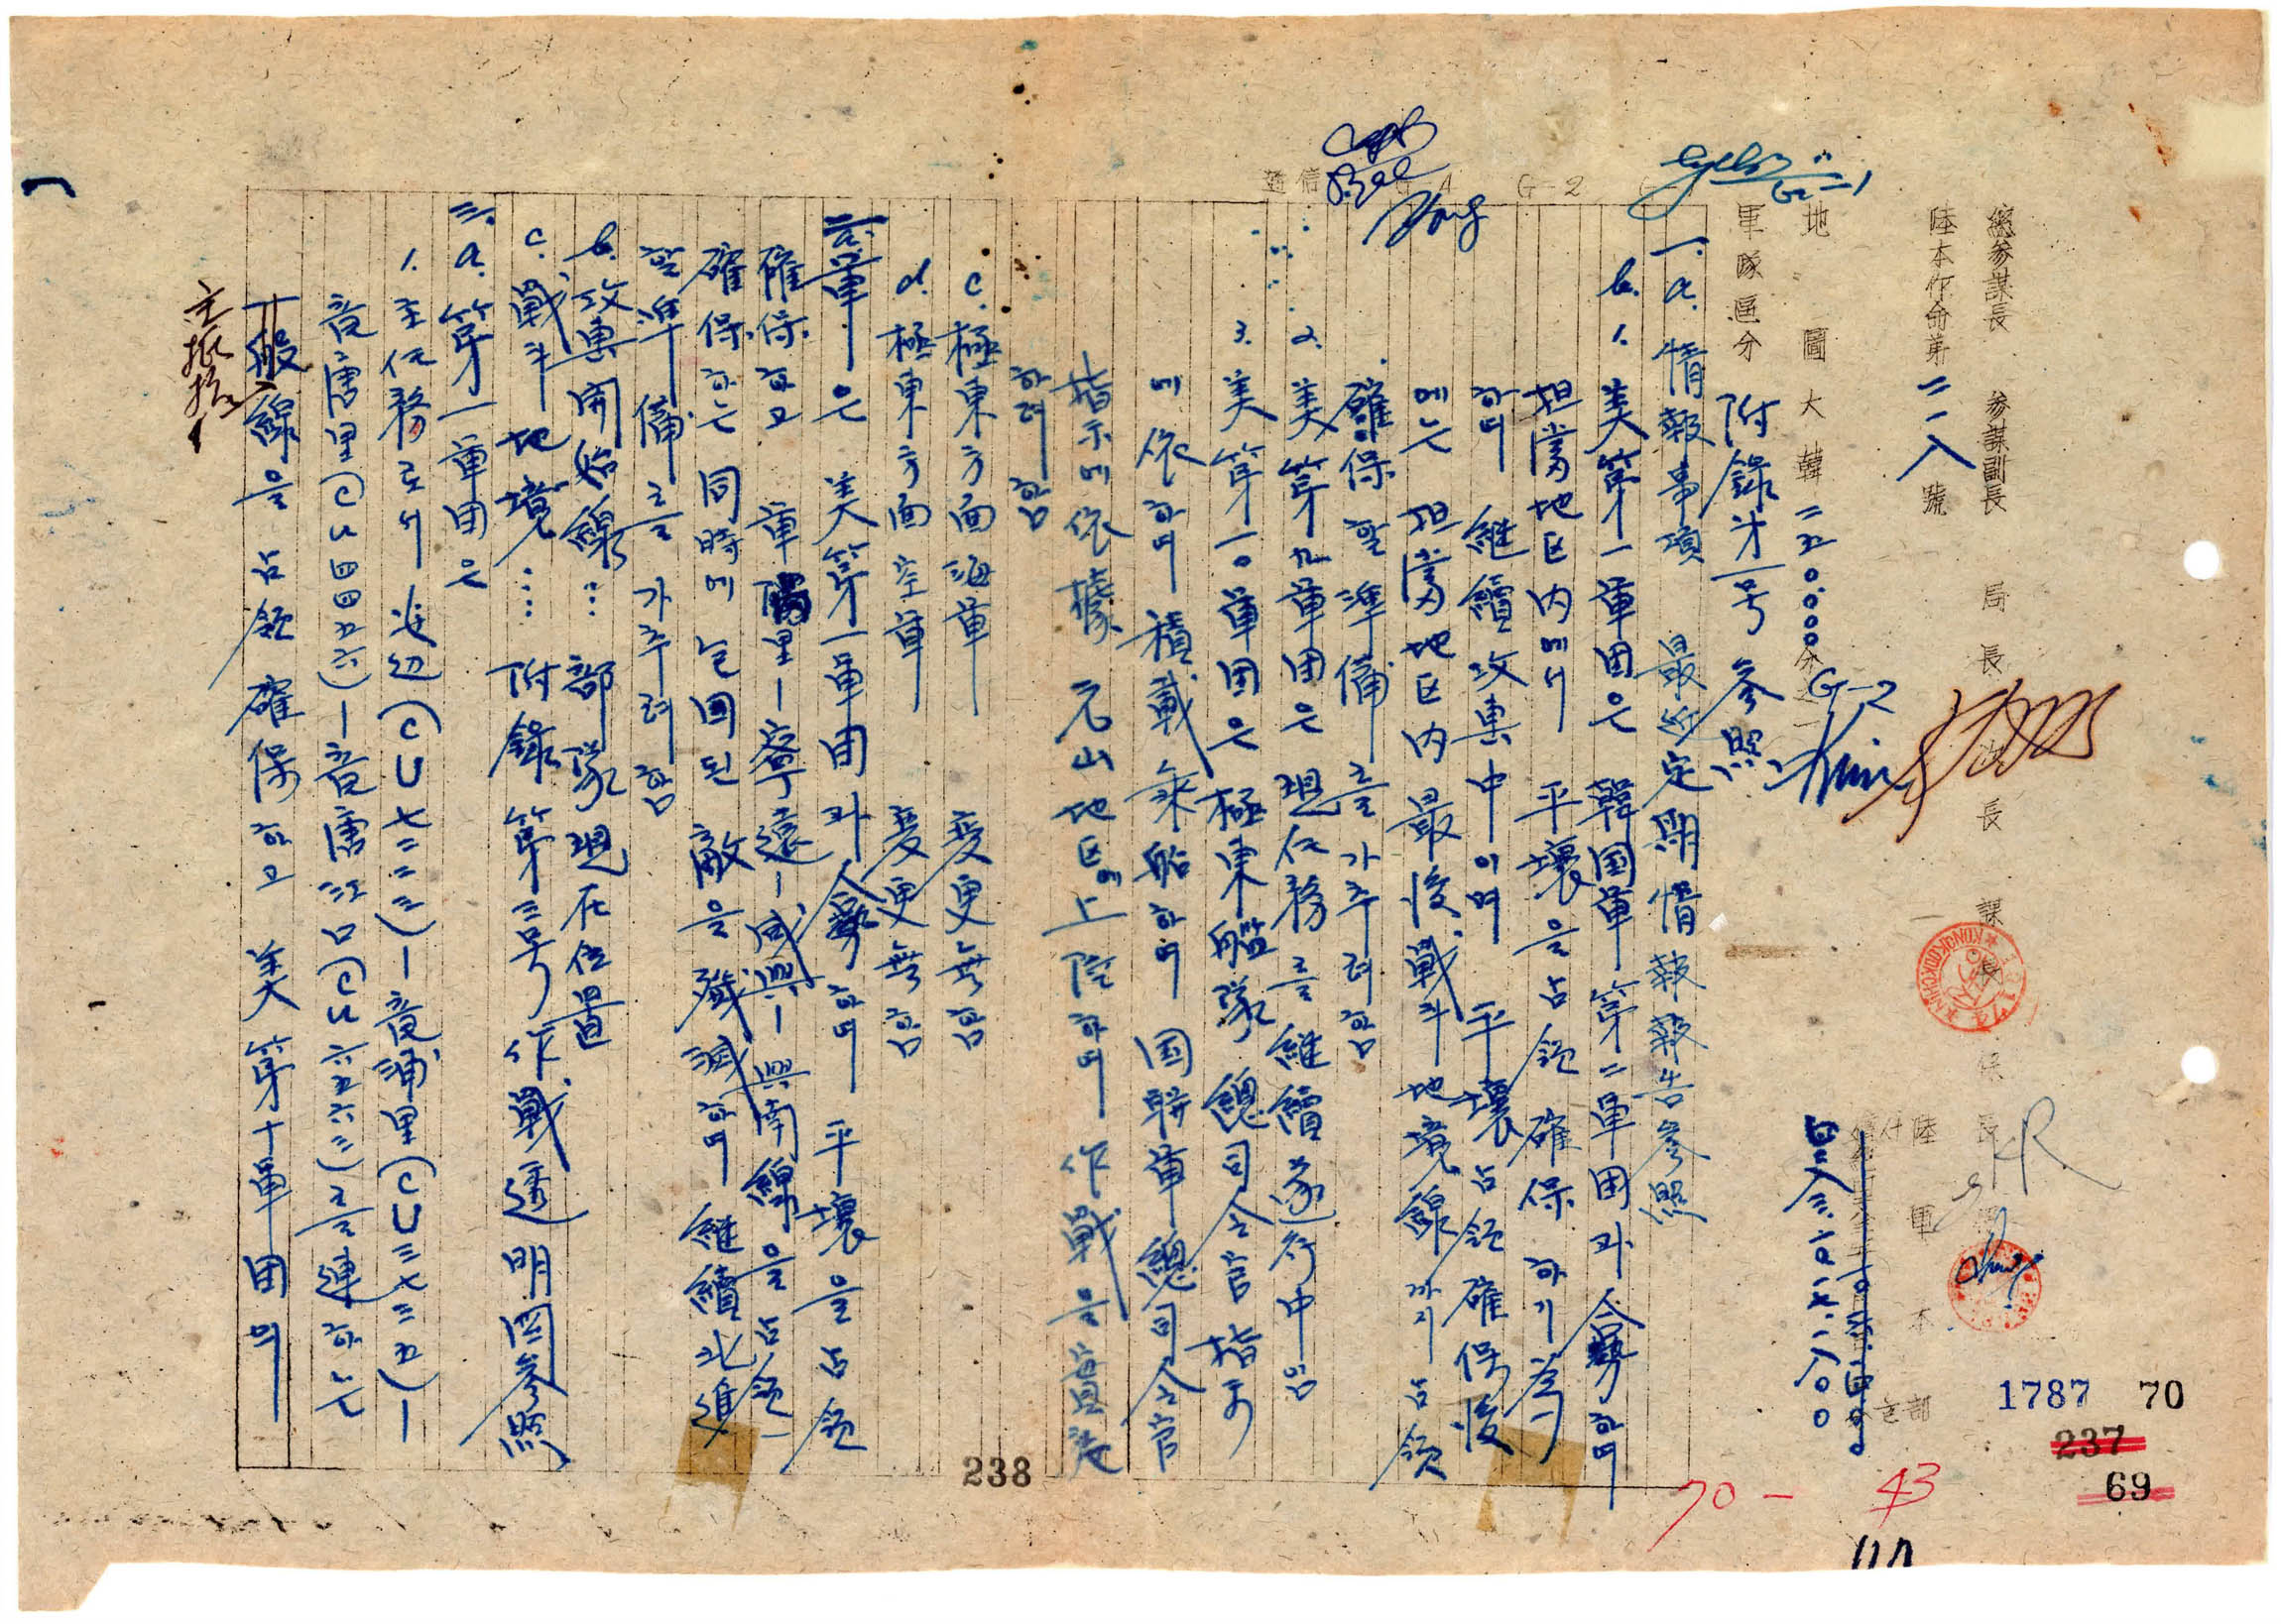 總參謀長 參謀副長 局長 課長
陸本作命第二一八號
陸軍本部
四二八三.一0.一七.一八00
地圖大韓二五0.000分之一
軍隊區分
附錄才一号 参照
一. a. 情報事項 最近定期情報報告参照
b. 1. 美第一軍団은 韓国軍 第二軍団과 合勢하며
担當地区内에서 平壤을 占領 確保 하기 為
하며 継續 攻擊中이며 平壤 占領 確保後
에는 担當 地区内 最後 戰斗 地境線까지 占領
確保 할 準備를 가추려함
2. 美第九軍団은 現任務를 継續 遂行中임
3. 美第一0軍団은 極東艦隊 總司令官 指示
에 依하며 積載 乘船하며 国联軍 總司令官
指示에 依據 元山地区에 上陸하며 作戰을 實施
하려함
c. 極東方面海軍 变更無함
d. 極東方面空軍 变更無함
二. a. 軍은 美第一軍団과 合勢하며 平壤을 占領
確保하고 軍隅里-寧遠-咸興-興南線을 占領
確保하는 同時에 包囲된 敵을 殲滅하며 継續 北進
할 準備를 가추려함
b. 攻擊開始線… 部隊現在位置
c. 戰斗地境… 附錄 第三号 作戰透明図参照
三. a. 第一軍団은
1. 主任務로서 (CU七二二三)-意浦里(CU三七三五)-
(CU四四五六)-(CU六五六三)를 連하는
一般線을 占領 確保하고 美 第十軍団의
通信 G-4 G-2 G-1
G-2
238
1787 70
237
69
70 - 43